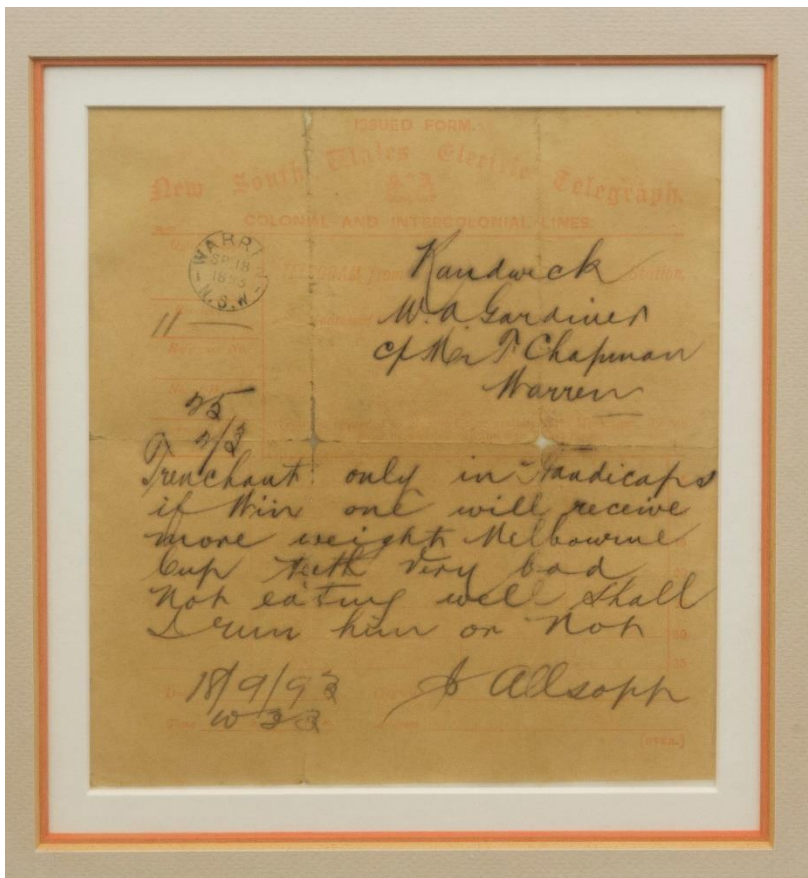 ISSUED FORM.
New South Wales Electric Telegraph.
COLONIAL AND INTERCOLONIAL LINES.
WARR
SP 18
N.S.W
from Randwick Station,
11
W. A. Gardiner
c/ Mr T. Chapman
Warren
25
2/3
Trenchant only in Handicaps
if Win one will receive
more weight Melbourne
Cup teeth very bad
Not eating well Shall
I run him or Not
30
35
18/9/93
J Allsopp
Time